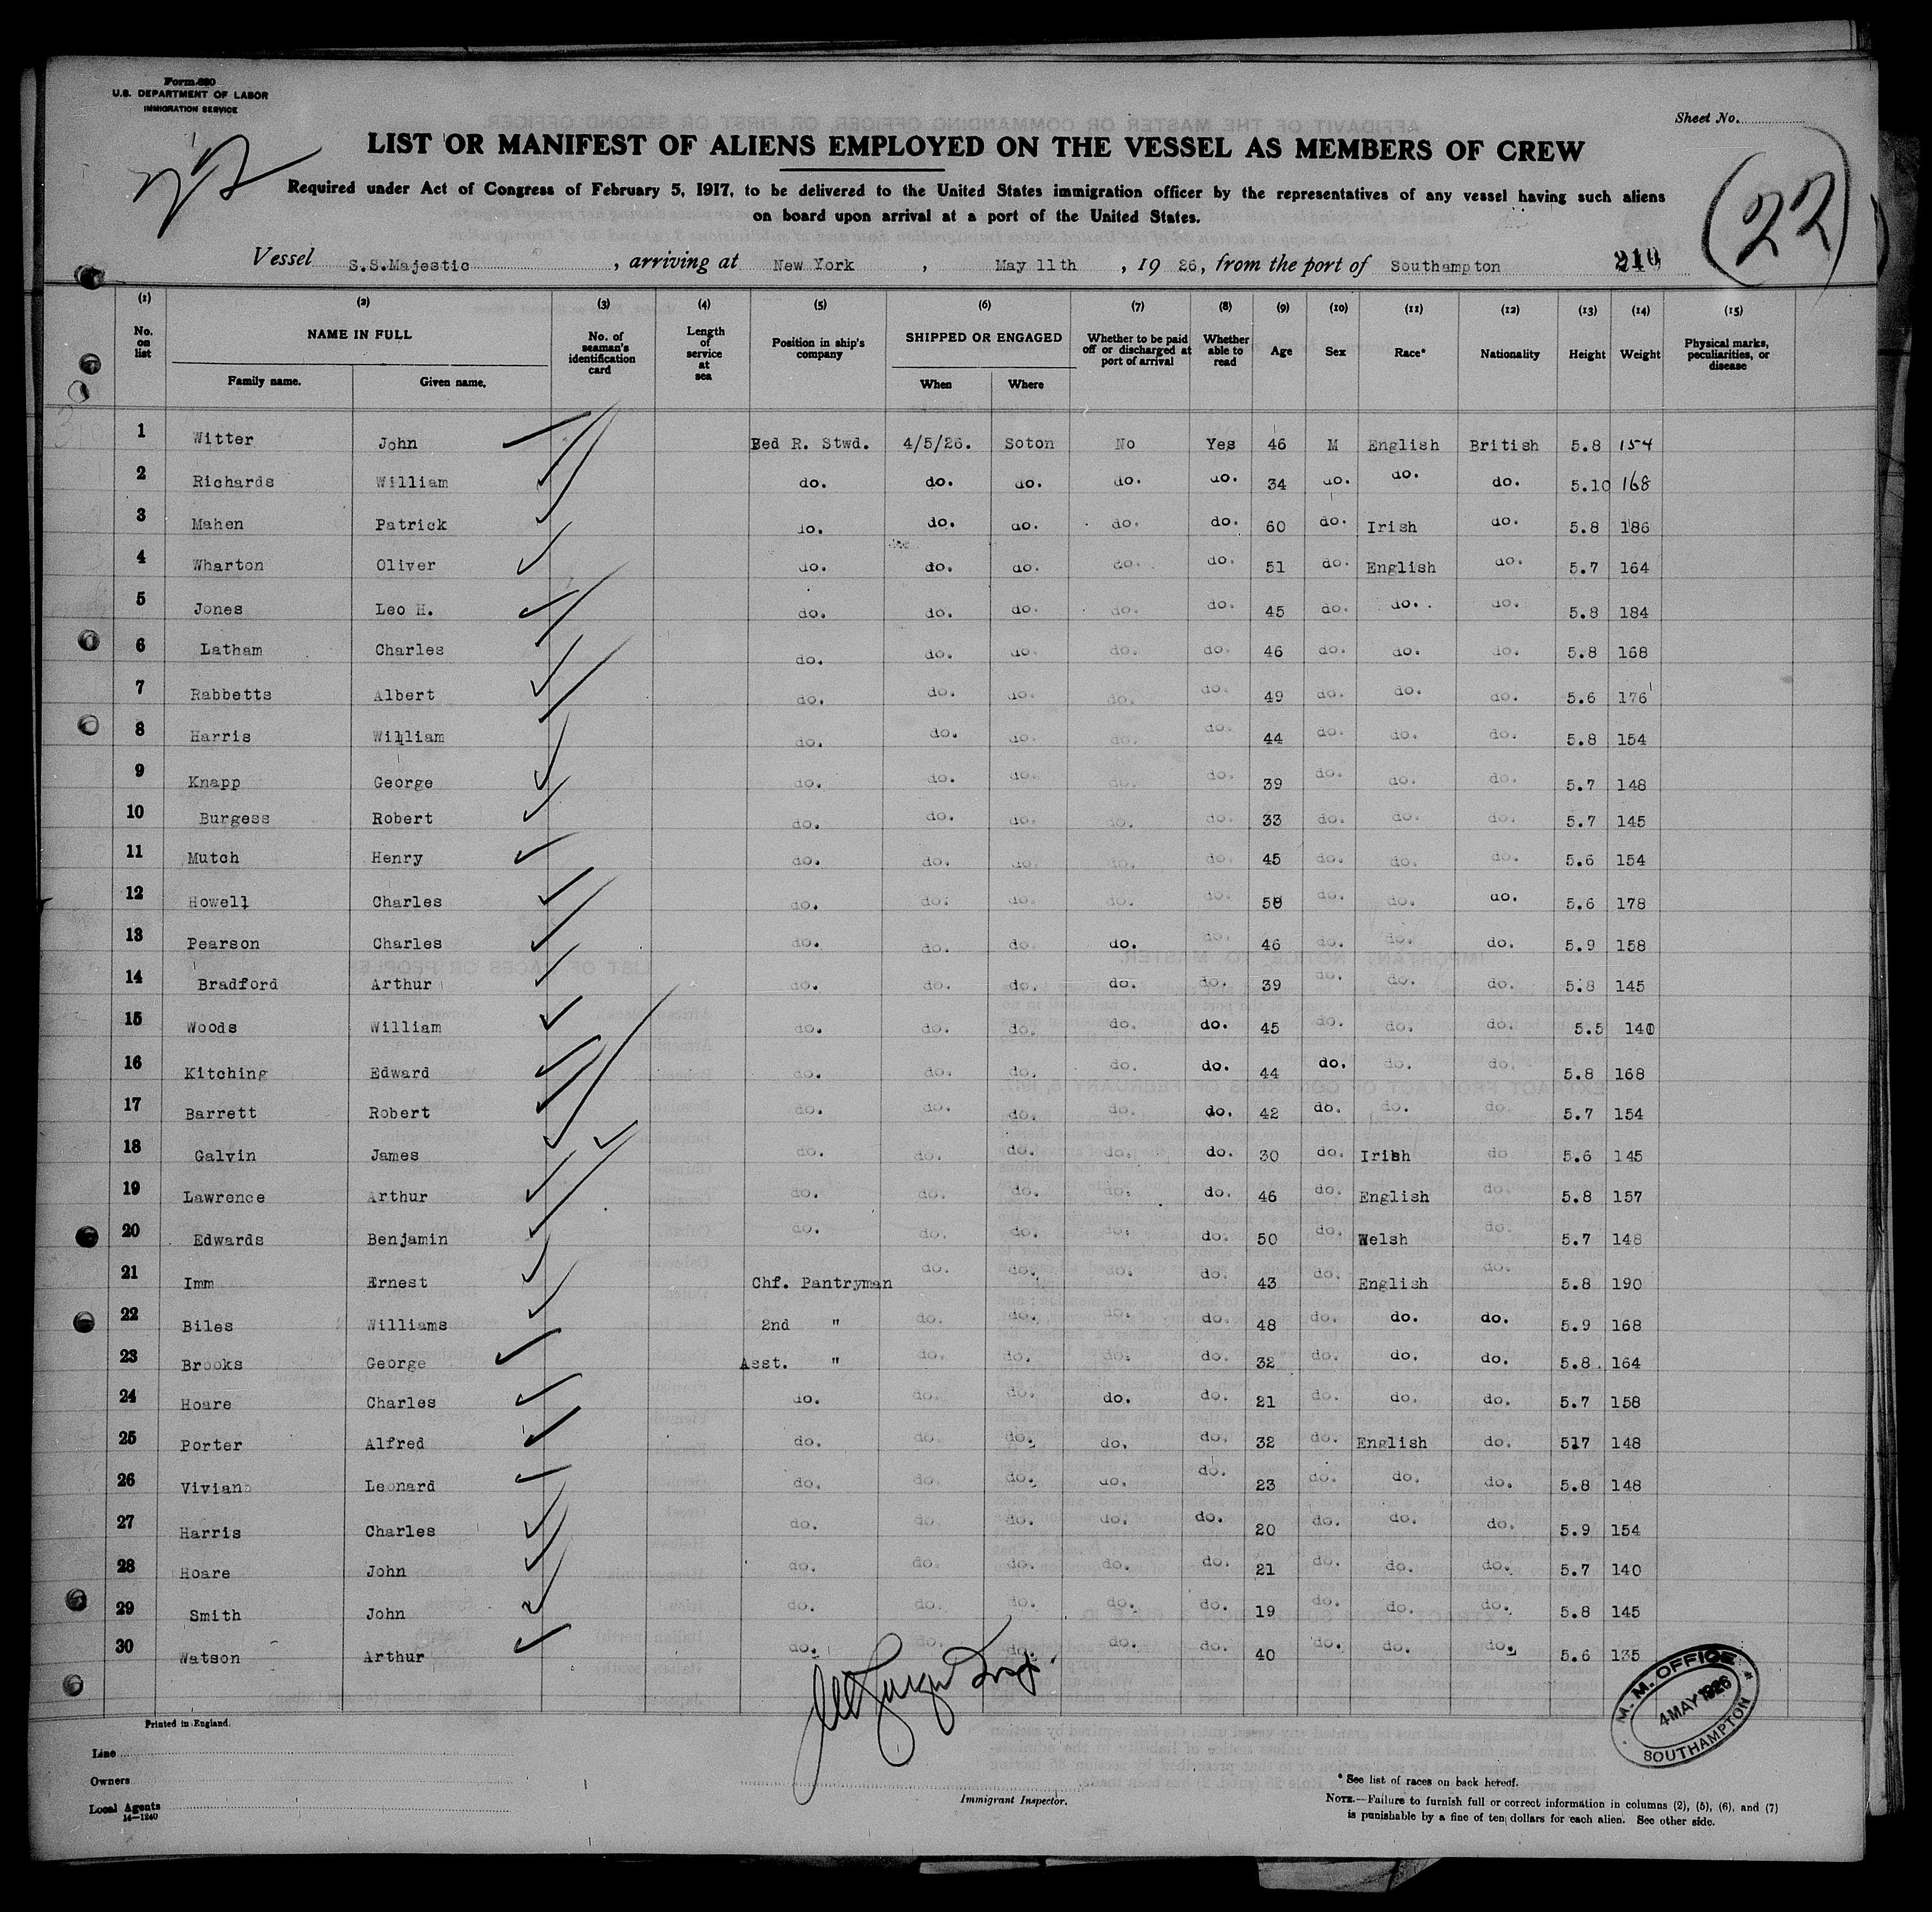 Form 680
U.S. DEPARTMENT OF LABOR
IMMIGRATION SERVICE
Sheet No.
LIST OR MANIFEST OF ALIENS EMPLOYED ON THE VESSEL AS MEMBERS OF CREW
Required under Act of Congress of February 5, 1917, to be delivered to the United States immigration officer by the representatives of any vessel having such aliens
on board upon arrival at a port of the United States.
(22)
Vessel S.S.Majestic, arriving at New York, May 11th, 1926, from the port of Southampton 210
(1) (2) (3) (4) (5) (6) (7) (8) (9) (10) (11) (12) (13) (14) (15)
No. on list NAME IN FULL No. of seaman's identification card Length of service at sea Position in ship's company SHIPPED OR ENGAGED Whether to be paid off or discharged at port of arrival Whether able to read Age Sex Race* Nationality Height Weight Physical marks, peculiarities, or disease
Family name. Given name. When Where
1 Witter John Bed R. Stwd. 4/5/26. Soton No Yes 46 M English British 5.8 154
2 Richards William do. do. do. do. do. 34 do. do. do. 5.10 168
3 Mahen Patrick do. do. do. do. do. 60 do. Irish do. 5.8 186
4 Wharton Oliver do. do. do. do. do. 51 do. English do. 5.7 164
5 Jones Leo H. do. do. do. do. do. 45 do. do. do. 5.8 184
6 Latham Charles do. do. do. do. do. 46 do. do. do. 5.8 168
7 Rabbetts Albert do. do. do. do. do. 49 do. do. do. 5.6 176
8 Harris William do. do. do. do. do. 44 do. do. do. 5.8 154
9 Knapp George do. do. do. do. do. 39 do. do. do. 5.7 148
10 Burgess Robert do. do. do. do. do. 33 do. do. do. 5.7 145
11 Mutch Henry do. do. do. do. do. 45 do. do. do. 5.6 154
12 Howell Charles do. do. do. do. do. 50 do. do. do. 5.6 178
13 Pearson Charles do. do. do. do. do. 46 do. do. do. 5.9 158
14 Bradford Arthur do. do. do. do. do. 39 do. do. do. 5.8 145
15 Woods William do. do. do. do. do. 45 do. do. do. 5.5 140
16 Kitching Edward do. do. do. do. do. 44 do. do. do. 5.8 168
17 Barrett Robert do. do. do. do. do. 42 do. do. do. 5.7 154
18 Galvin James do. do. do. do. do. 30 do. Irish do 5.6 145
19 Lawrence Arthur do. do. do. do. do. 46 do. English do. 5.8 157
20 Edwards Benjamin do. do. do. do. do. 50 do. Welsh do. 5.7 148
21 Imm Ernest Chf. Pantryman do. do. do. do. 43 do. English do. 5.8 190
22 Biles Williams 2nd " do. do. do. do. 48 do. do. do. 5.9 168
23 Brooks George Asst. " do. do. do. do. 32 do. do. do. 5.8. 164
24 Hoare Charles do. do. do. do. do. 21 do. do. do. 5.7 158
25 Porter Alfred do. do. do. do. do. 32 do. English do. 517 148
26 Vivian Leonard do. do. do. do. do. 23 do. do. do. 5.8 148
27 Harris Charles do. do. do. do. do. 20 do. do. do. 5.9 154
28 Hoare John do. do. do. do. do. 21 do. do. do. 5.7 140
29 Smith John do. do. do. do. do. 19 do. do. do. 5.8 145
30 Watson Arthur do. do. do. do. do. 40 do. do. do. 5.6 135
M. M. OFFICE
4 MAY 1926
SOUTHAMPTON
Printed in England.
Line
Owners
Local Agents
14—1240
Immigrant Inspector.
* See list of races on back hereof.
NOTE.—Failure to furnish full or correct information in columns (2), (5), (6), and (7)
is punishable by a fine of ten dollars for each alien. See other side.